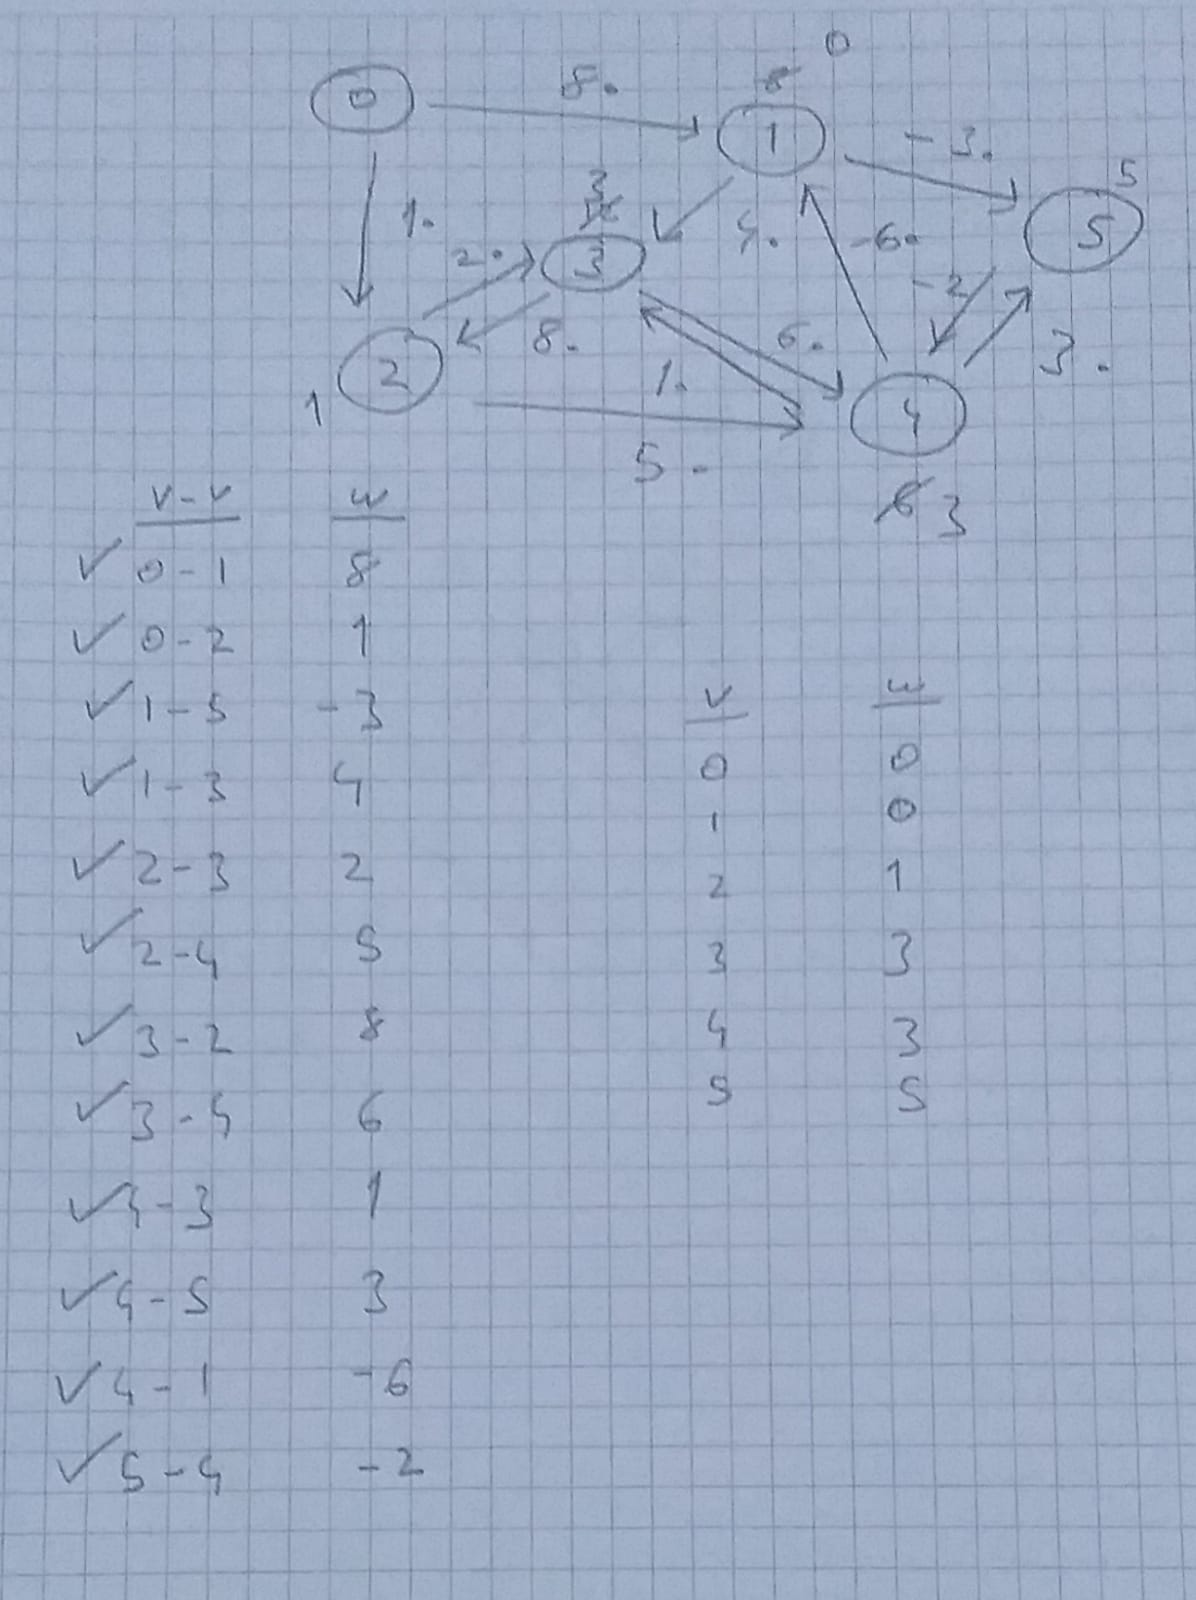 0
8
0
8.
1
-3.
5
3
1.
4.
-6.
5
2.
3
-2
8.
6.
3.
2
1.
4
1
5.
6 3
V-V W
✓ 0-1 8
✓ 0-2 1
✓ 1-5 -3
✓ 1-3 4
✓ 2-3 2
✓ 2-4 5
✓ 3-2 8
✓ 3-4 6
✓ 4-3 1
✓ 4-5 3
✓ 4-1 -6
✓ 5-4 -2
V W
0 0
1 0
2 1
3 3
4 3
5 5